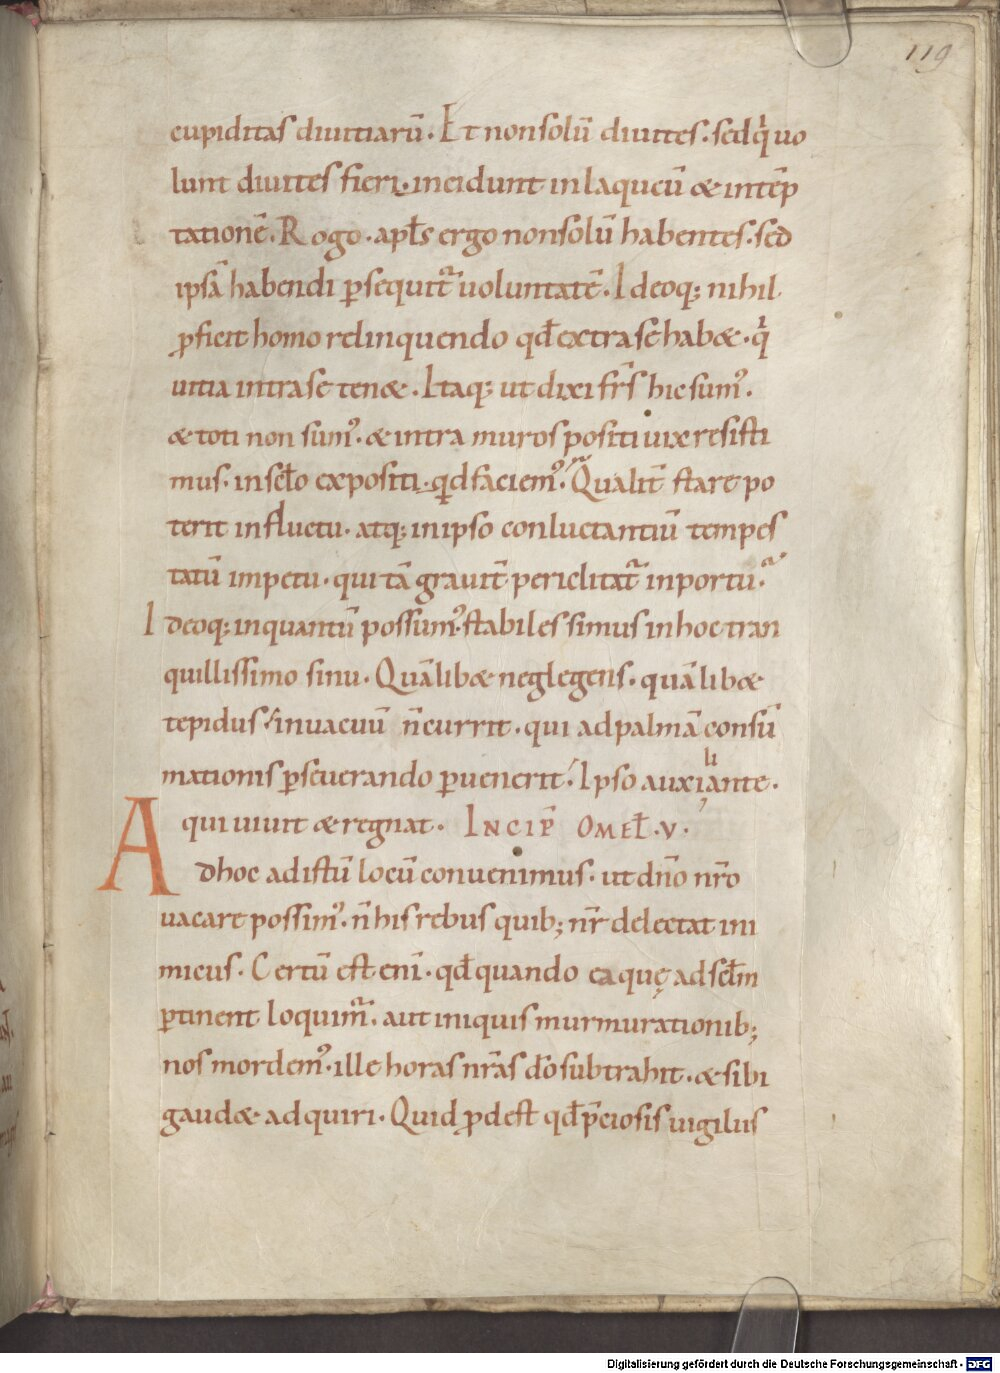 119
cupiditas diuitiarū. Et non solū diuites. sed q̇ uo
lunt diuites fieri. incidunt in laqueū & in tēp
tationē. Rogo. apƚs ergo non solū habentes. sed
ipsā habendi ꝑsequit᷑ uoluntatē. Ideoq; nihil
ꝓficit homo relinquendo qđ extra se habæ. q̇
uitia intra se tenæ. Itaq; ut dixi frs̄ hic sumꝰ.
æ toti non sumꝰ. æ intra muros positi uix resisti
mus. in sclo expositi. qd faciemꝰ. Qualit̄ stare po
terit in fluctu. atq; in ipso conluctantiū tempes
tatū impetu. qui tā grauit̄ periclitat᷑ in portu.
Ideoq; inquantū possumꝰ. stabiles simus in hoc tran
quillissimo sinu. Quālibæ neglegens. quālibæ
tepidus. in uacuū n̄ currit. qui ad palmā consū
mationis ꝑseuerando ꝑuenerit. Ipso auxiliante.
qui uiuit æ regnat. INCIP̄ OMEƚ. V.
Ad hoc ad istū locū conuenimus. ut dn̄o nr̄o
uacare possimꝰ. n̄ his rebus quib; nr̄ delectat ini
micus. Certū est eni. qđ quando ea quę ad sclm
ꝑtinent loquim᷑. aut iniquis murmurationib;
nos mordemꝰ. ille horas nrās dō subtrahit. æ sibi
gaudæ adquiri. Quid ꝓdest qđ p̄ciosis uigiliis
Digitalisierung gefördert durch die Deutsche Forschungsgemeinschaft - DFG